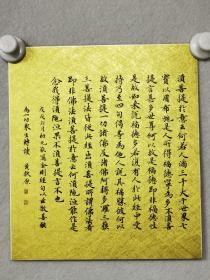 須菩提於意云何若人滿三千大千世界七
寶以用布施是人所得福德寧為多不須菩
提言甚多世尊何以故是福德即非福德性
是故如來說福德多若復有人於此經中受
持乃至四句偈等為他人說其福勝彼何以
故須菩提一切諸佛及諸佛阿耨多羅三藐
三菩提法皆從此經出須菩提所謂佛法者
即非佛法須菩提於意云何須陀洹能作是
念我得須陀洹果不須菩提言不也
戊戌六月初九敬寫金剛經句以
為一切眾生